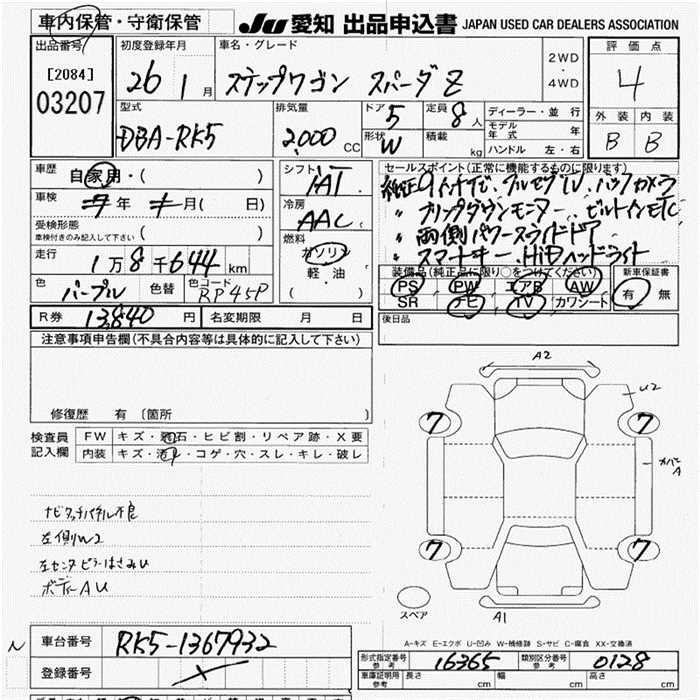 車内保管・守衛保管 JU 愛知 出品申込書 JAPAN USED CAR DEALERS ASSOCIATION
出品番号 [2084] 03207
初度登録年月 26 1月
車名・グレード ステップワゴン スパーダZ
2WD・4WD
評価点 4
外装 B 内装 B
型式 DBA-RK5
排気量 2,000 CC
ドア 5
形状 W
定員 8人
積載 kg
ディーラー・並行
モデル年式 年
ハンドル 左・右
車歴 自家用・( )
車検 年 月( 日)
受検形態
車検付きのみ記入して下さい ( )
走行 1万8千644km
色 パープル 色替 色コード RP45P
シフト IAT
冷房 AAC
燃料 ガソリン 軽・油 ( )
セールスポイント(正常に機能するものに限ります)
純正 ナビ、フルセグTV、バックカメラ
〃 フリップダウンモニター、ビルトインETC
〃 両側パワースライドドア
〃 スマートキー、HiDヘッドライト
装備品(純正品に限り○をつけてください) 新車保証書
PS PW エアB AW 有・無
SR ナビ TV カワシート
R券 13,840円 名変期限 月 日
後日品
注意事項申告欄(不具合内容等は具体的に記入して下さい)
修復歴 有〔箇所 〕
検査員記入欄
FW キズ・飛石・ヒビ割・リペア跡・X要
内装 キズ・汚れ・コゲ・穴・スレ・キレ・破レ
ナビタッチパネル不良
左側W2
左センタピラーはさみU
ボディーAU
A2
U2
7 7
A
7 7
スペア A1
A-キズ E-エクボ U-凹み W-補修跡 S-サビ C-腐食 XX-交換済
N
車台番号 RK5-1367932
登録番号
形式指定番号 参考 16365 類別区分番号 参考 0128
車庫証明用 参考 長さ cm 幅 cm 高さ cm